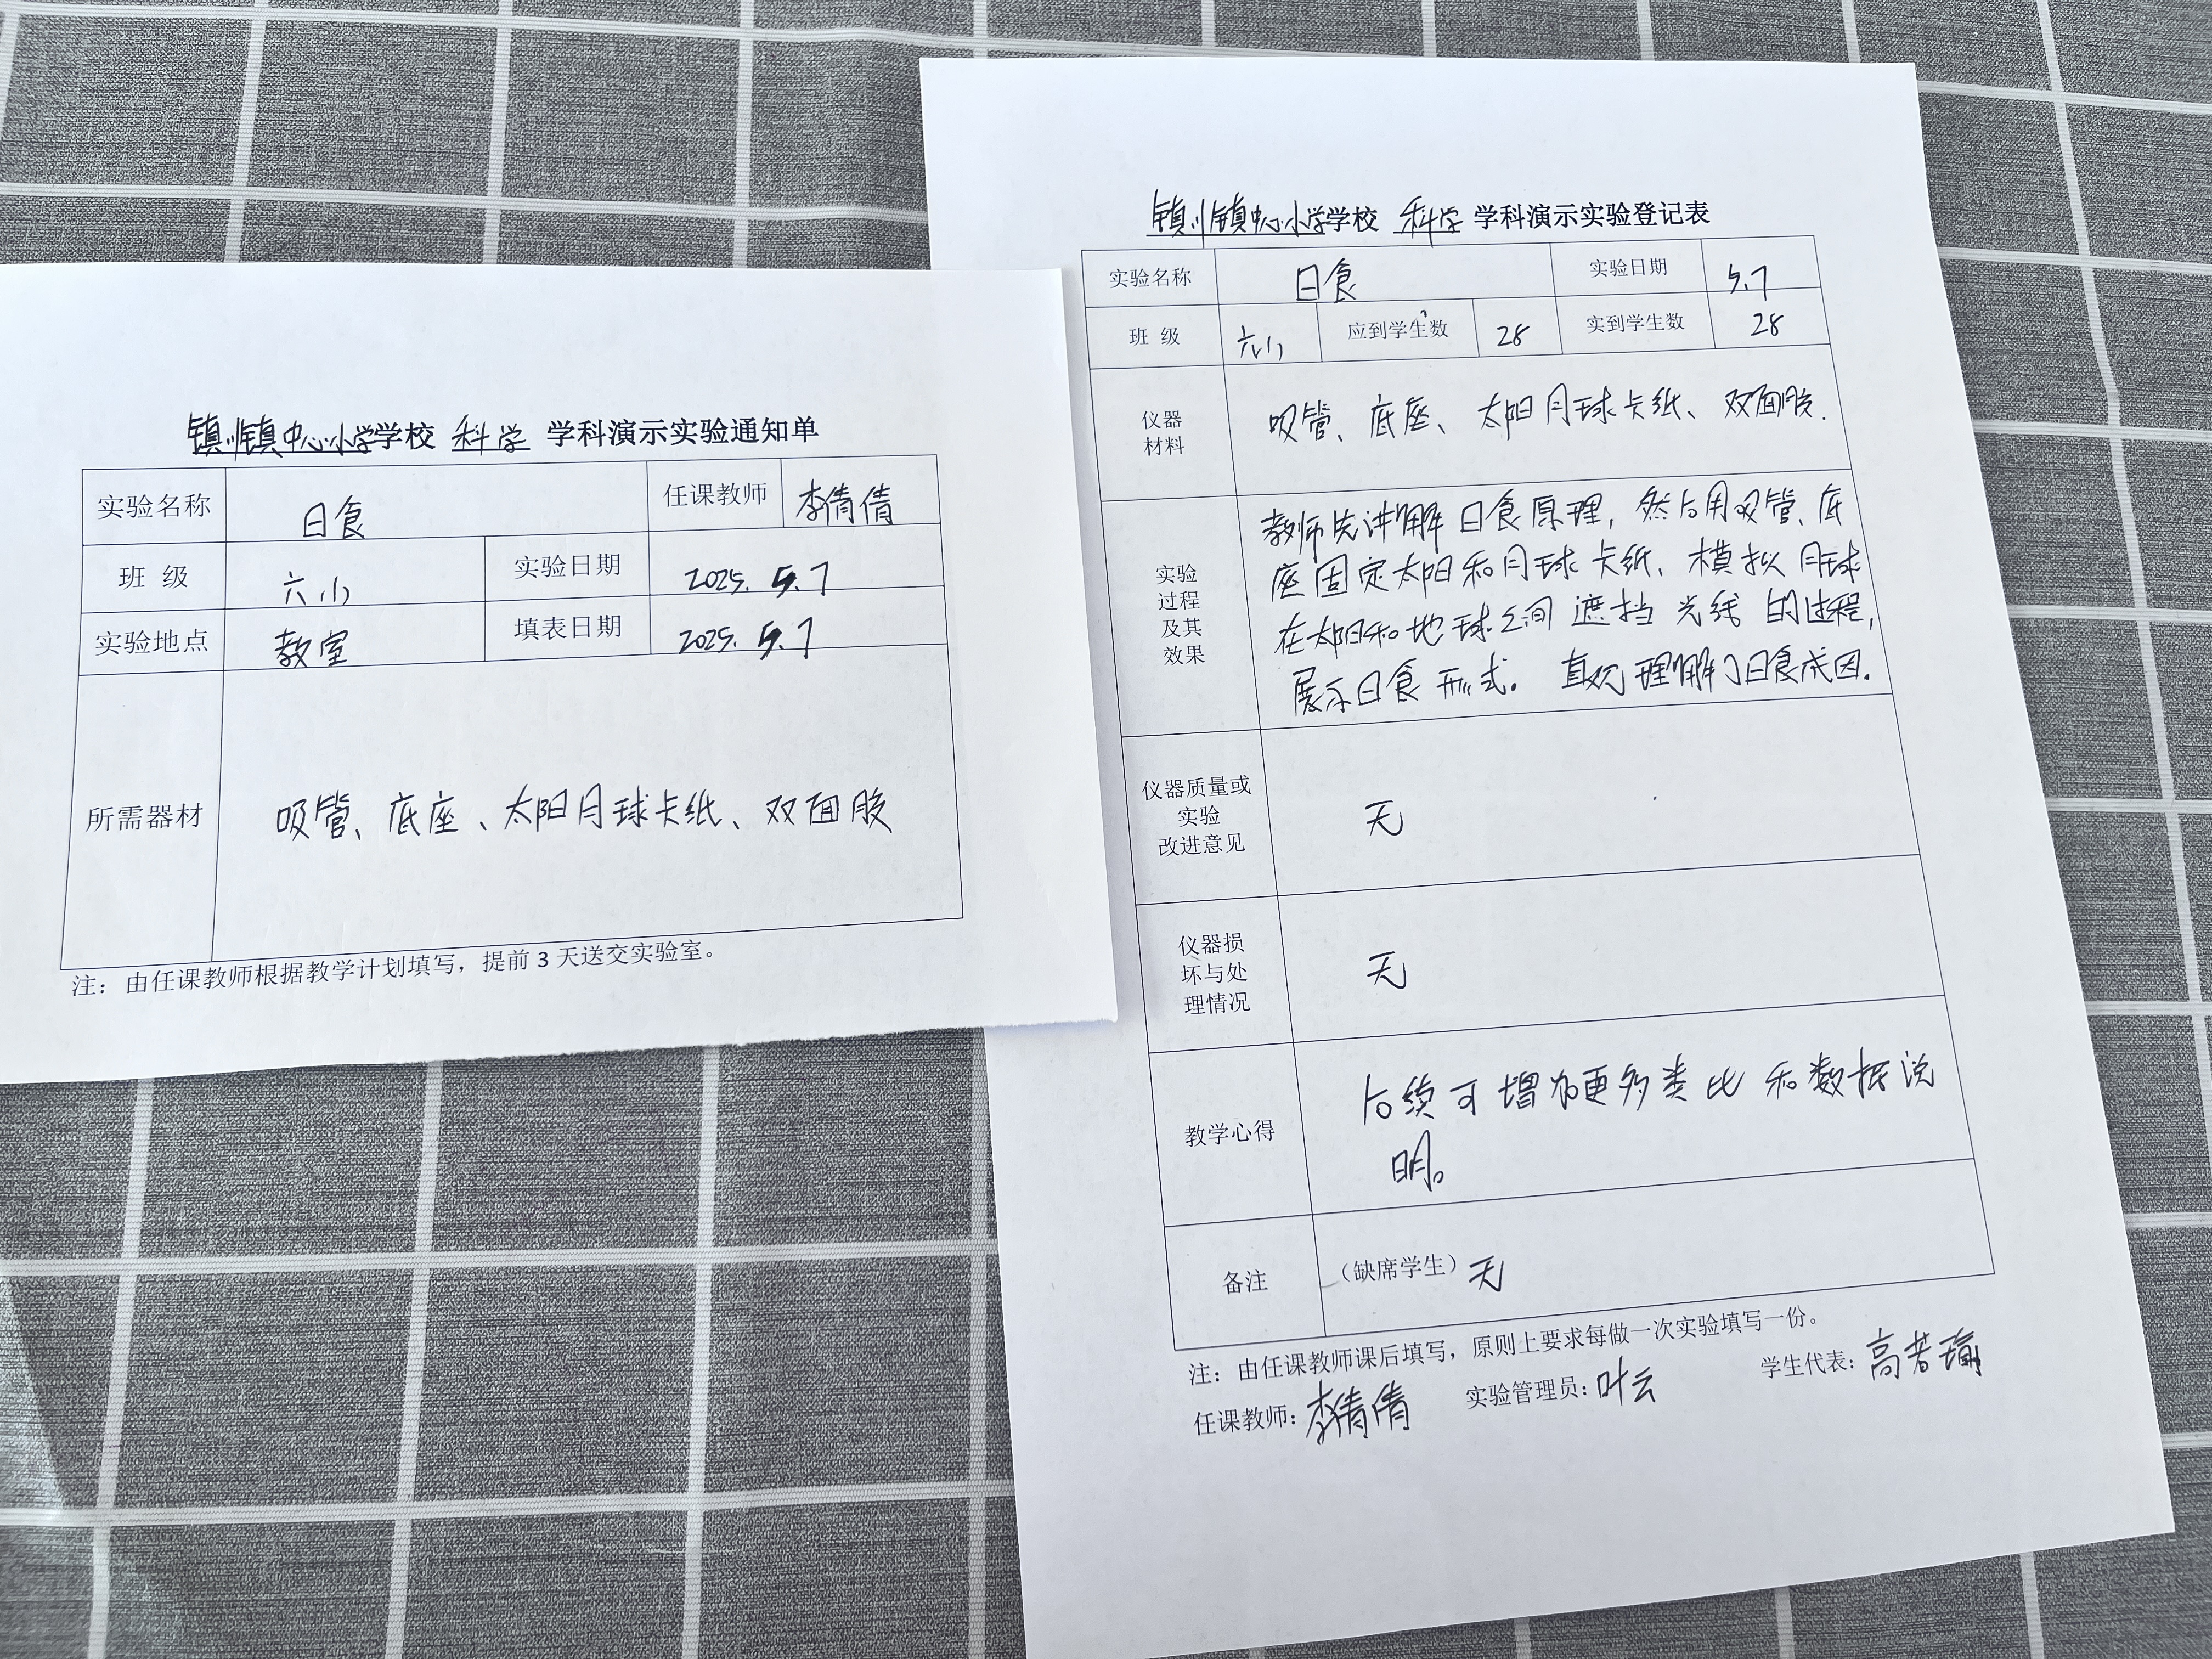 镇川镇中心小学学校 科学 学科演示实验通知单
实验名称 日食 任课教师 李倩倩
班 级 六小 实验日期 2025. 5. 7
实验地点 教室 填表日期 2025. 5. 7
所需器材 吸管、底座、太阳月球卡纸、双面胶
注：由任课教师根据教学计划填写，提前 3 天送交实验室。
镇川镇中心小学学校 科学 学科演示实验登记表
实验名称 日食 实验日期 5.7
班 级 六小 应到学生数 28 实到学生数 28
仪器
材料
吸管、底座、太阳月球卡纸、双面胶.
实验
过程
及其
效果
教师先讲解日食原理，然后用吸管、底
座固定太阳和月球卡纸、模拟月球
在太阳和地球之间遮挡光线的过程，
展示日食形式。直观理解了日食成因.
仪器质量或
实验
改进意见
无
仪器损
坏与处
理情况
无
教学心得
后续可增加更多类比和数据说
明。
备注 （缺席学生）无
注：由任课教师课后填写，原则上要求每做一次实验填写一份。
任课教师：李倩倩 实验管理员：叶云 学生代表：高若瑜